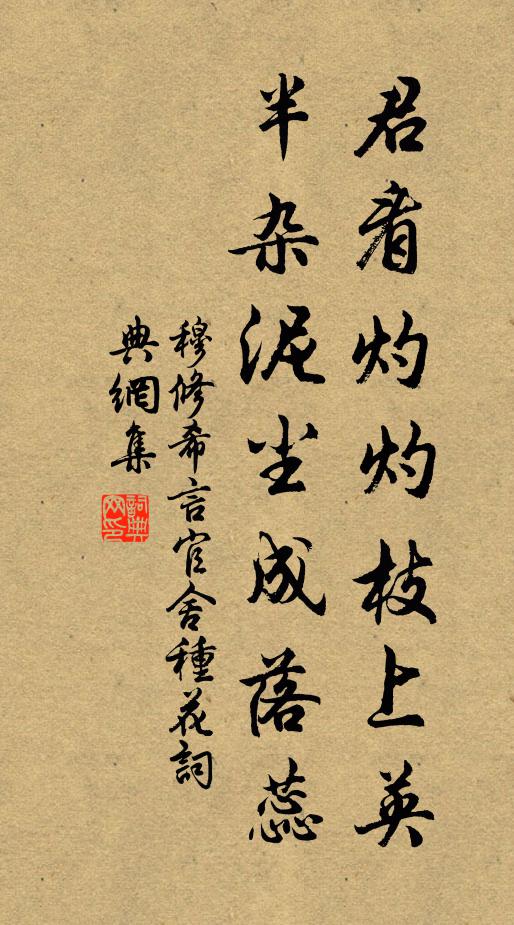 君看灼灼枝上英
半杂泥尘成落蕊
穆修希言官舍種花詞
典網集
詞典网印